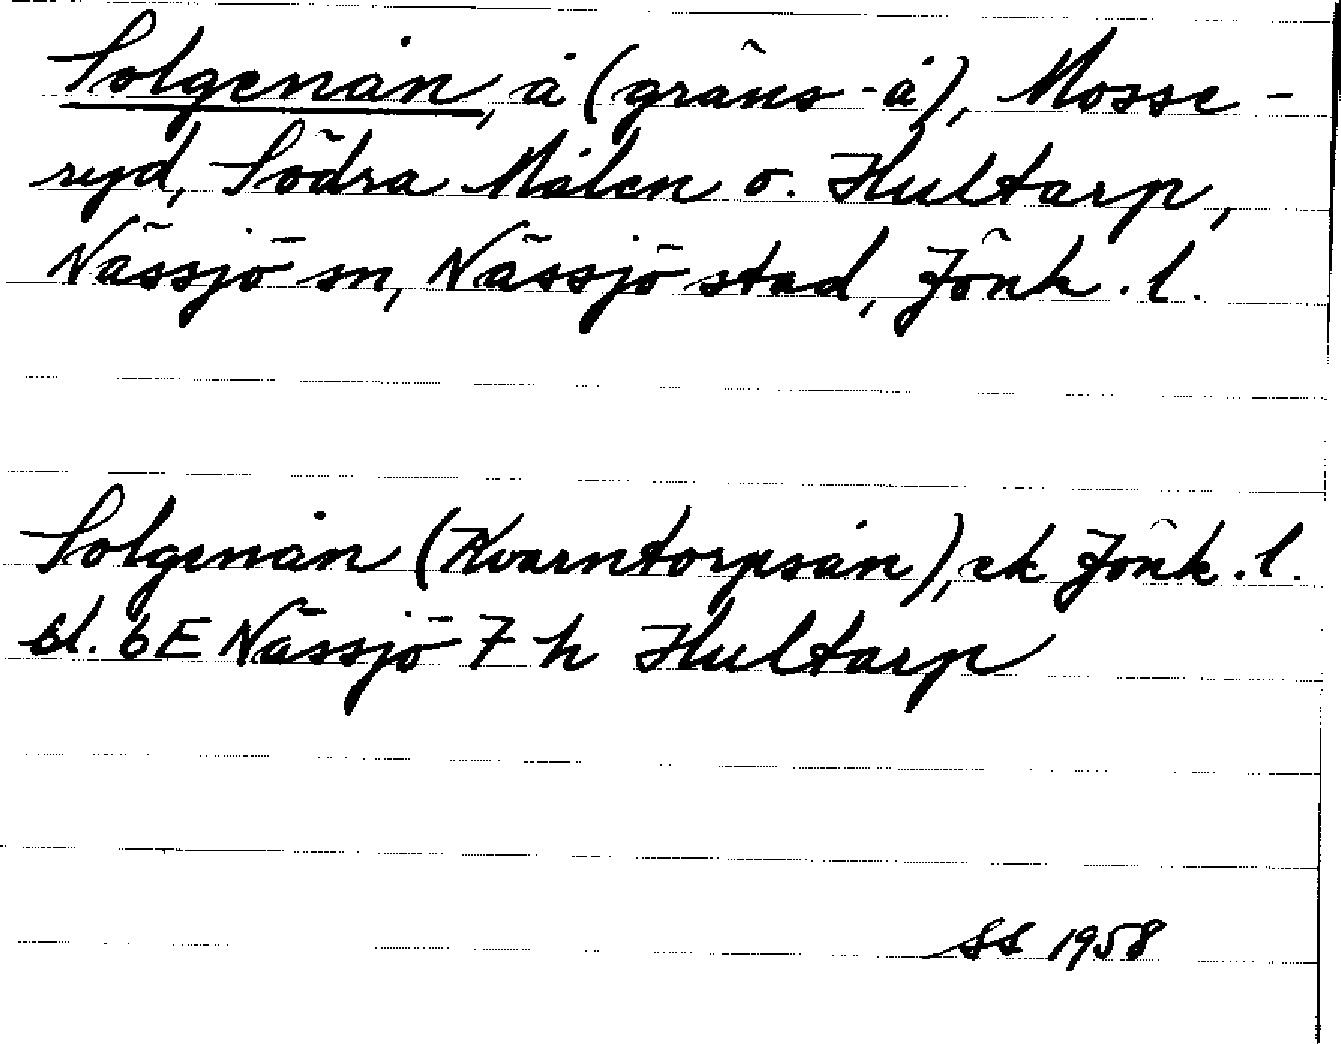 Solgenån, å (gräns-å), Mosse-
ryd, Södra Målen o. Hultarp,
Nässjö sn, Nässjö stad, Jönk. l.
Solgenån (Kvarntorpsån), ek Jönk. l.
bl. 6E Nässjö 7 h Hultarp
SS 1958